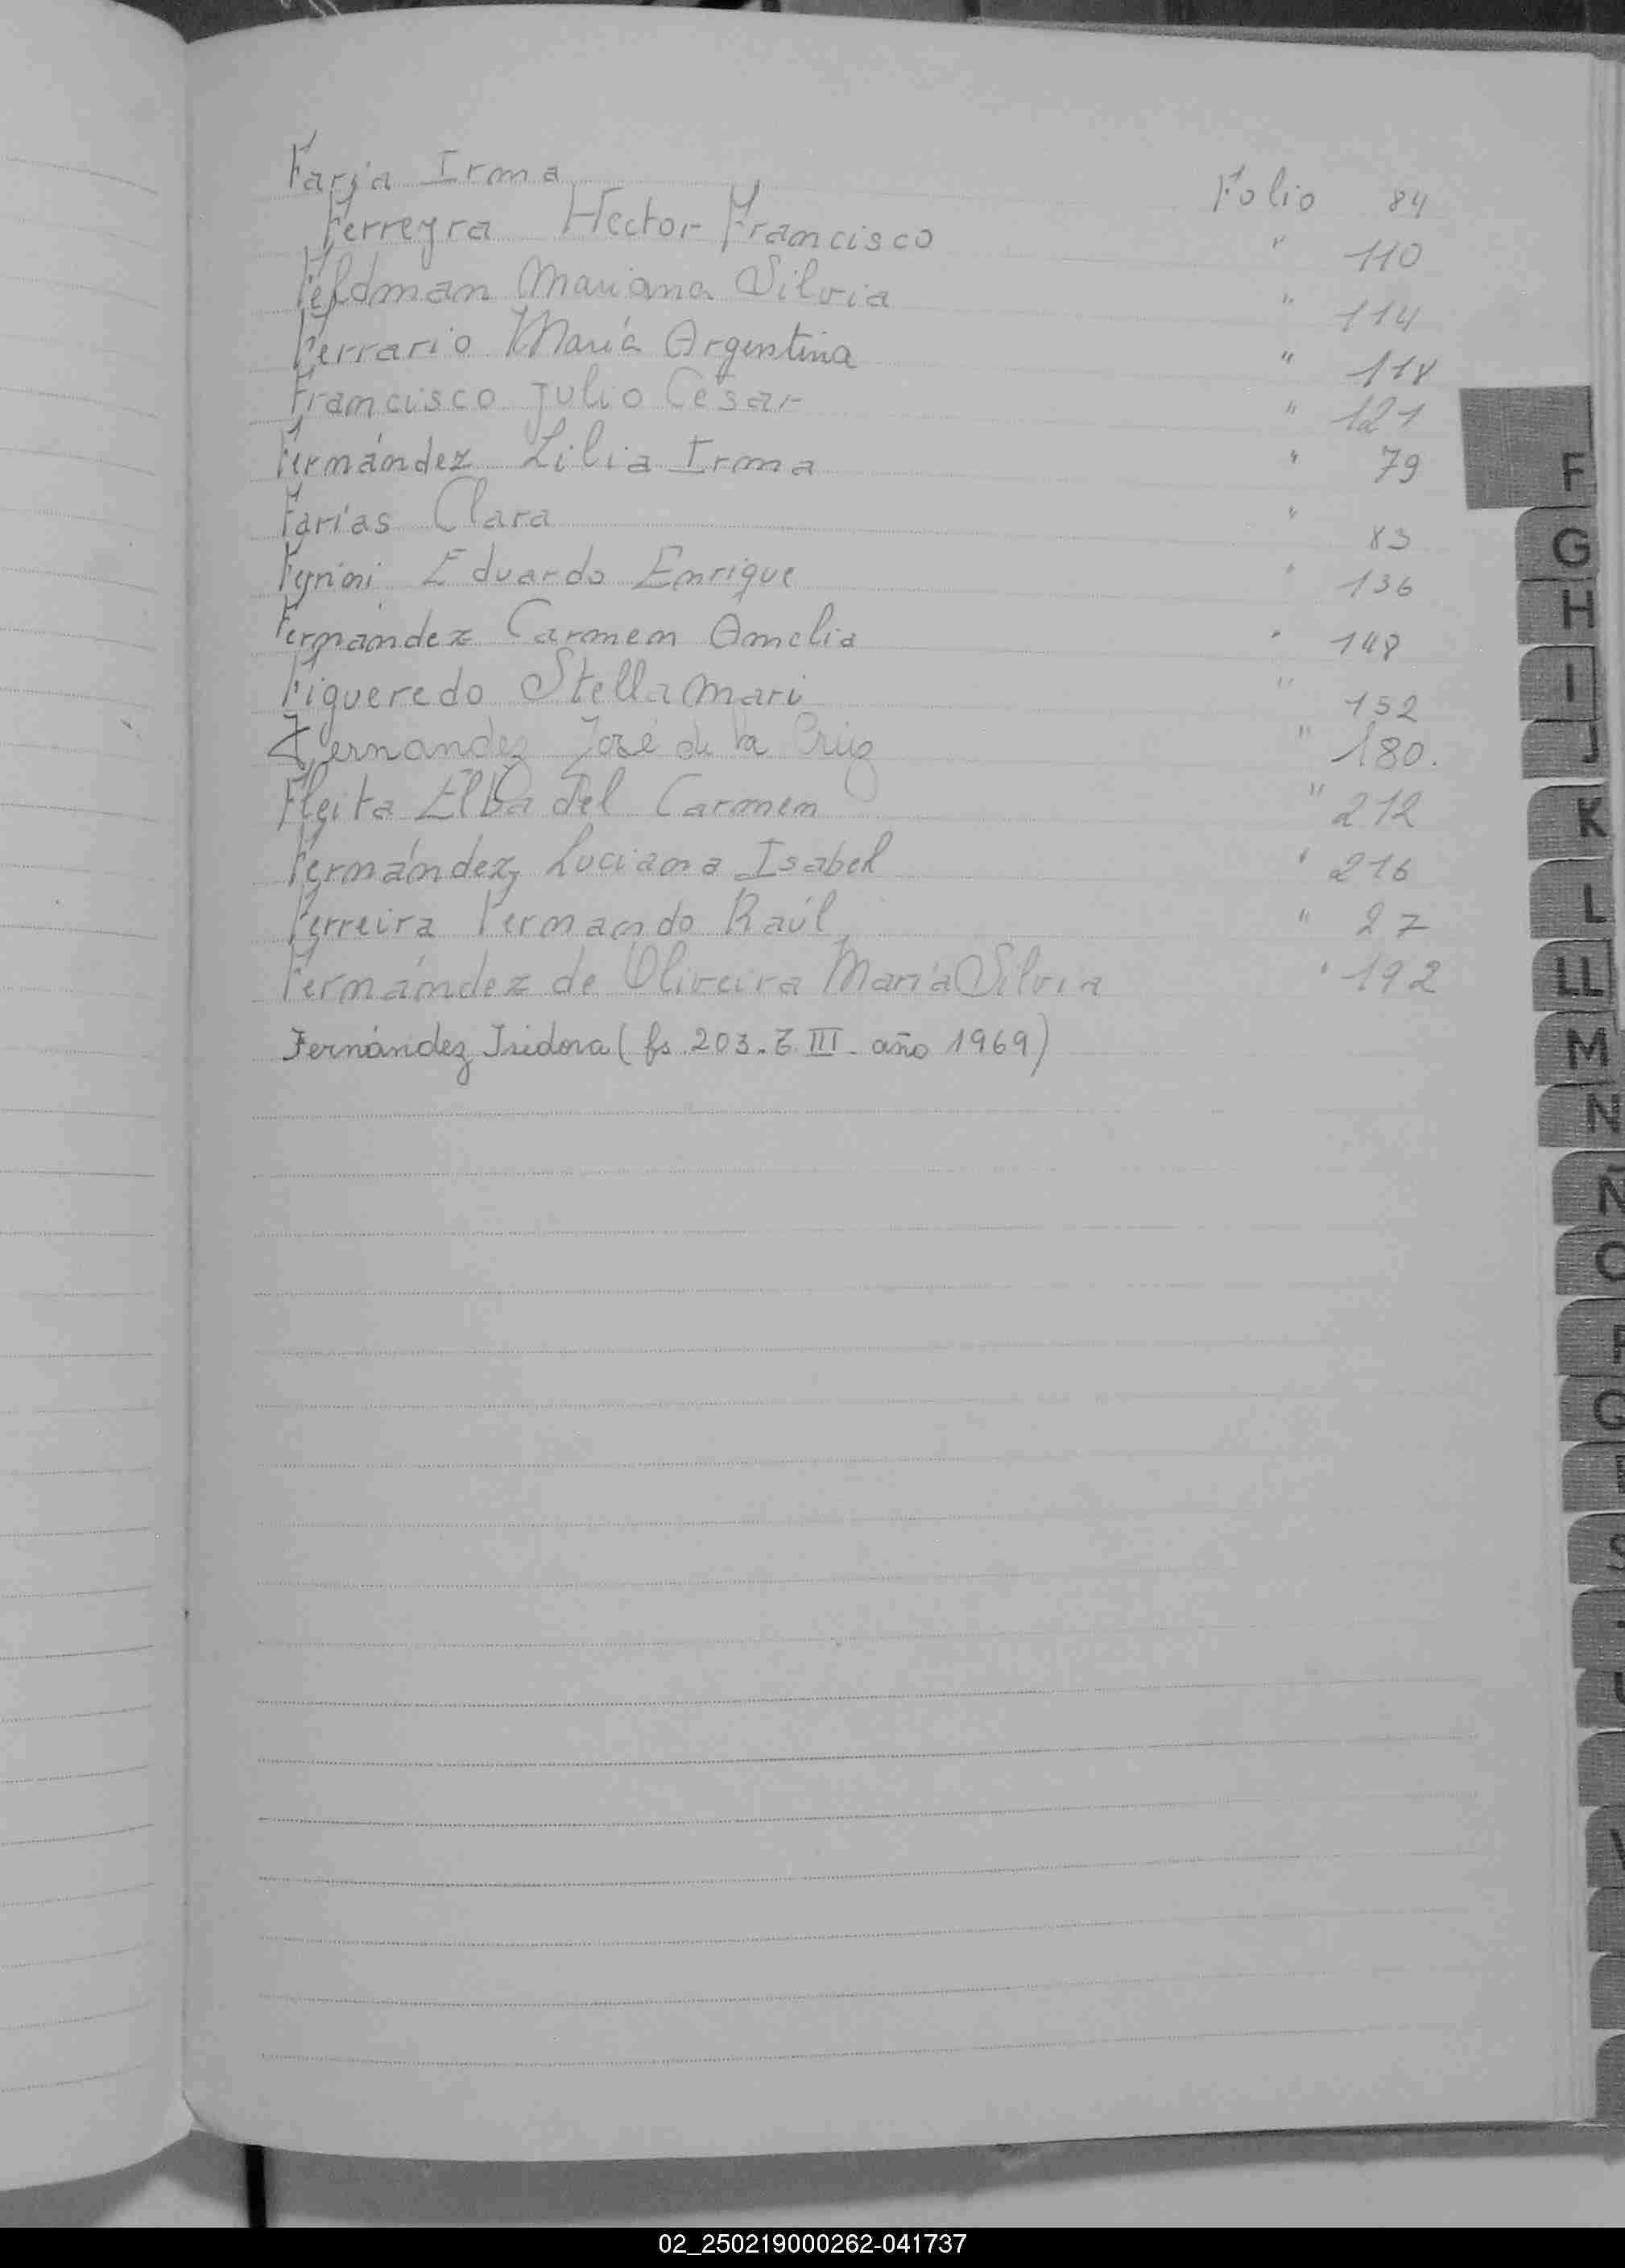 Farja Irma Folio 84
Ferreyra Hector Francisco " 110
Feldman Mariana Silvia " 114
Ferrario María Argentina " 118
Francisco Julio Cesar " 121
Fernández Lilia Irma " 79
Farías Clara " 83
Eduardo Enrique " 136
Fernández Carmen Amelia " 148
Figueredo Stella Mari " 152
Fernandez José de la Cruz " 180.
Fleita Elba del Carmen " 212
Fernández, Luciana Isabel " 216
Ferreira Fernando Raúl " 27
Fernández de Oliveira María Silvia " 192
Fernández Isidora (fs. 203. T. III. año 1969)
F
G
H
I
J
K
L
LL
M
N
Ñ
O
P
Q
S
U
V
02_250219000262-041737